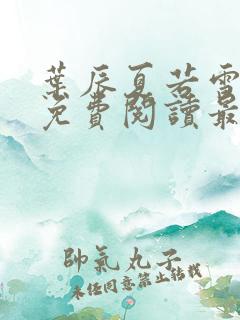 葉辰夏若雪
免費閱讀最
帥氣丸子
未經同意禁止轉載